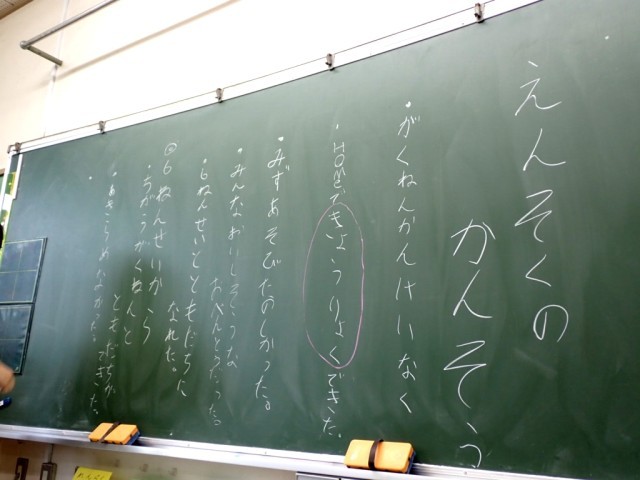 えんそくの
かんそう
・がくねんかんけいなく
・HOMEで きょうりょくできた。
・みずあそびたのしかった。
・みんなおいしそうな
おべんとうだった
・6ねんせいとともだちに
なれた。
◎6ねんせいから
・ちがうがくねんと
ともだちが できた。
・あきらめなかった。